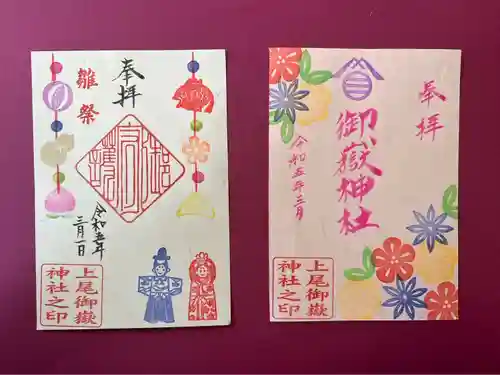 奉拝
雛祭
御守護
令和五年
三月一日
上尾御嶽
神社之印
奉拝
御嶽神社
令和五年三月
上尾御嶽
神社之印